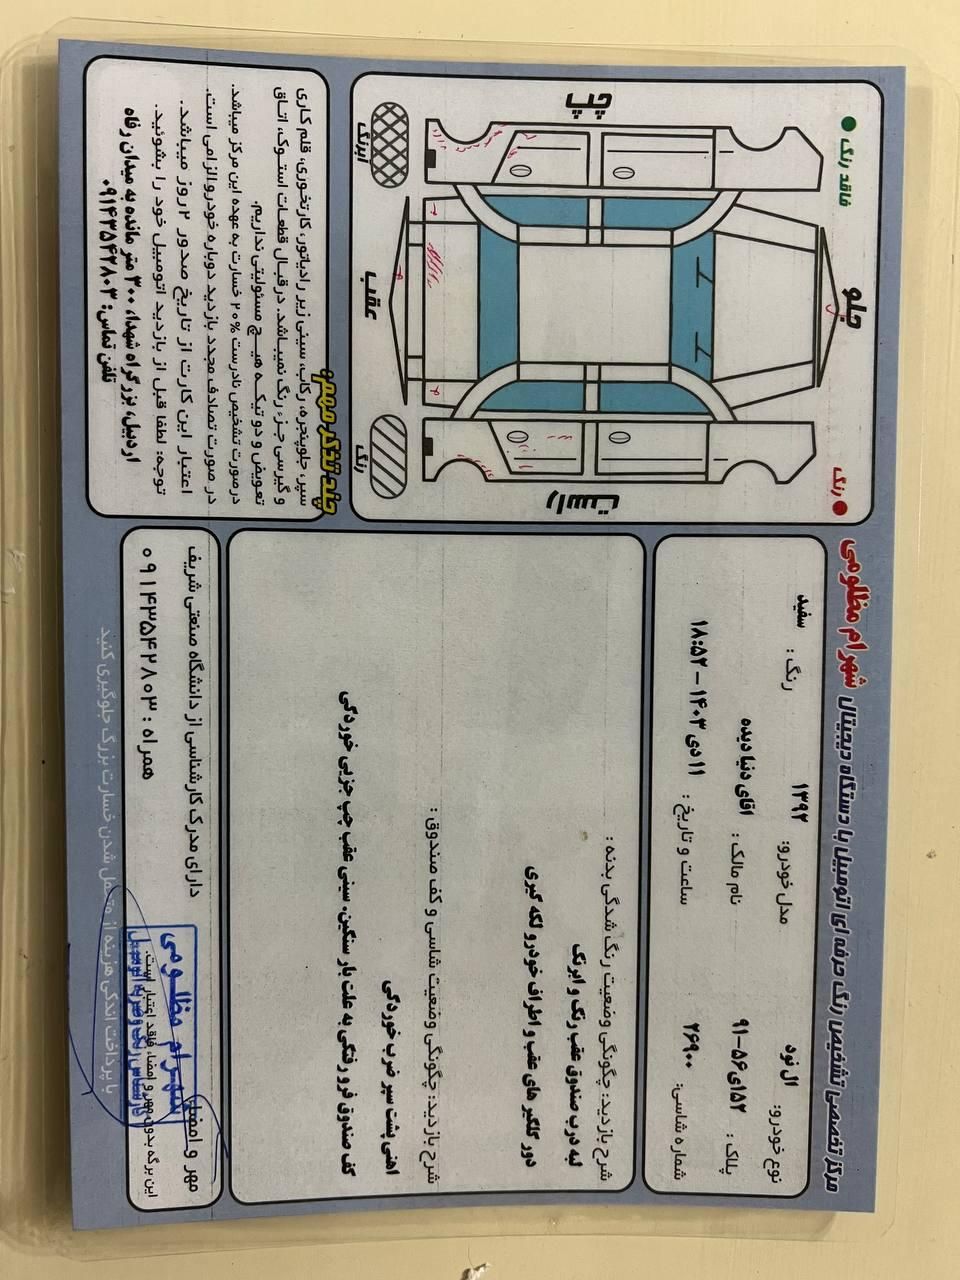 مرکز تخصصی تشخیص رنگ حرفه ای اتومبیل با دستگاه دیجیتال شهرام مظلومی
نوع خودرو: ال نود
مدل خودرو: ۱۳۹۲
رنگ : سفید
پلاک : ۱۵۲ی۵۶-۹۱
نام مالک : اقای دنیا دیده
شماره شاسی: ۲۶۹۰۰
ساعت و تاریخ : ۱۱ دی ۱۴۰۳ - ۱۸:۵۲
شرح بازدید: چگونگی وضعیت رنگ شدگی بدنه :
لبه درب صندوق عقب رنگ و ابرنگ
دور گلگیر های عقب و اطراف خودرو لکه گیری
شرح بازدید: چگونگی وضعیت شاسی و کف صندوق :
اهنی پشت سپر ضرب خوردگی
کف صندوق فرو رفتگی به علت بار سنگین. سینی عقب چپ جزیی خوردگی
مهر و امضاء
این برگه بدون مهر و امضاء فاقد اعتبار است.
شهرام مظلومی
دارای مدرک کارشناسی از دانشگاه صنعتی شریف
همراه : ۰۹۱۴۳۵۴۲۸۰۳
با پرداخت اندکی هزینه از متحمل شدن خسارت بزرگ جلوگیری کنید
رنگ
فاقد رنگ
جلو
چپ
راست
عقب
رنگ
ابرنگ
چند تذکر مهم:
سپر، جلوپنجره، رکاب، سینی زیر رادیاتور، کارتخوری، قلم کاری
و گیرسی جزء رنگ نمیباشد. درقبال قطعات استوک، اتاق
تعویض و دو تیکه هیچ مسئولیتی نداریم.
درصورت تشخیص نادرست ۲۰% خسارت به عهده این مرکز میباشد.
در صورت تصادف مجدد بازدید دوباره خودرو الزامی است.
اعتبار این کارت از تاریخ صدور ۲ روز میباشد.
توجه: لطفا قبل از بازدید اتومبیل خود را بشوئید.
اردبیل، بزرگراه شهدا، ۳۰۰ متر مانده به میدان رفاه
تلفن تماس: ۰۹۱۴۳۵۴۲۸۰۳